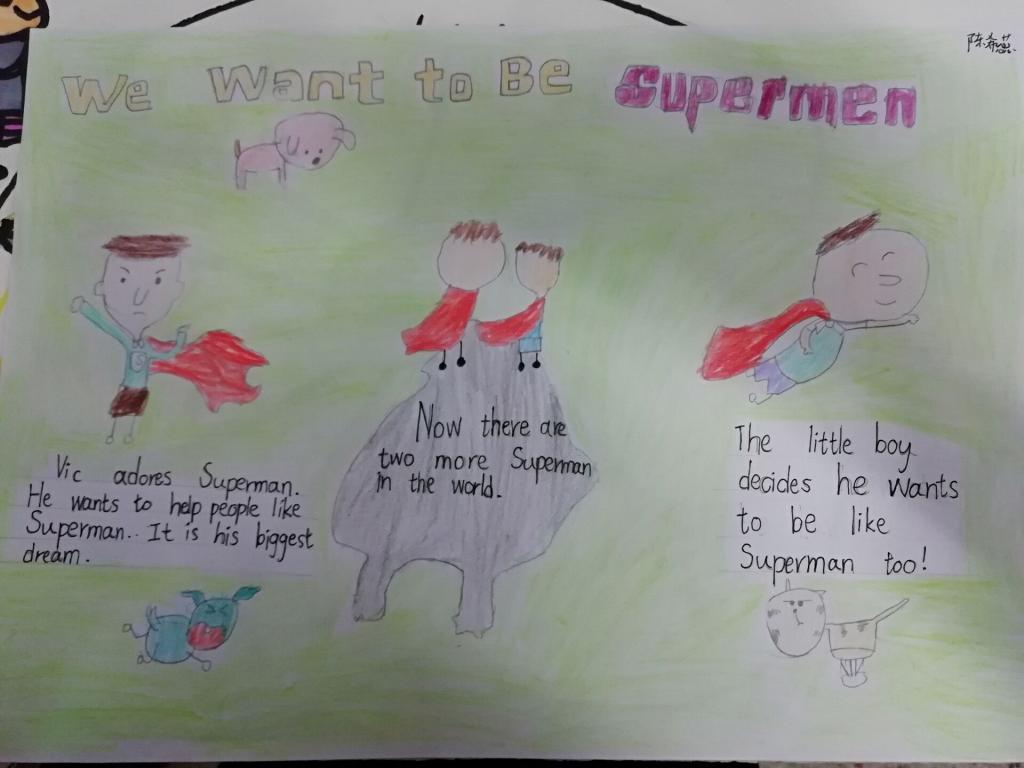 陈希蕊
We Want to Be Supermen
Vic adores Superman.
He wants to help people like
Superman.. It is his biggest
dream.
Now there are
two more Superman
in the world.
The little boy
decides he wants
to be like
Superman too!
S